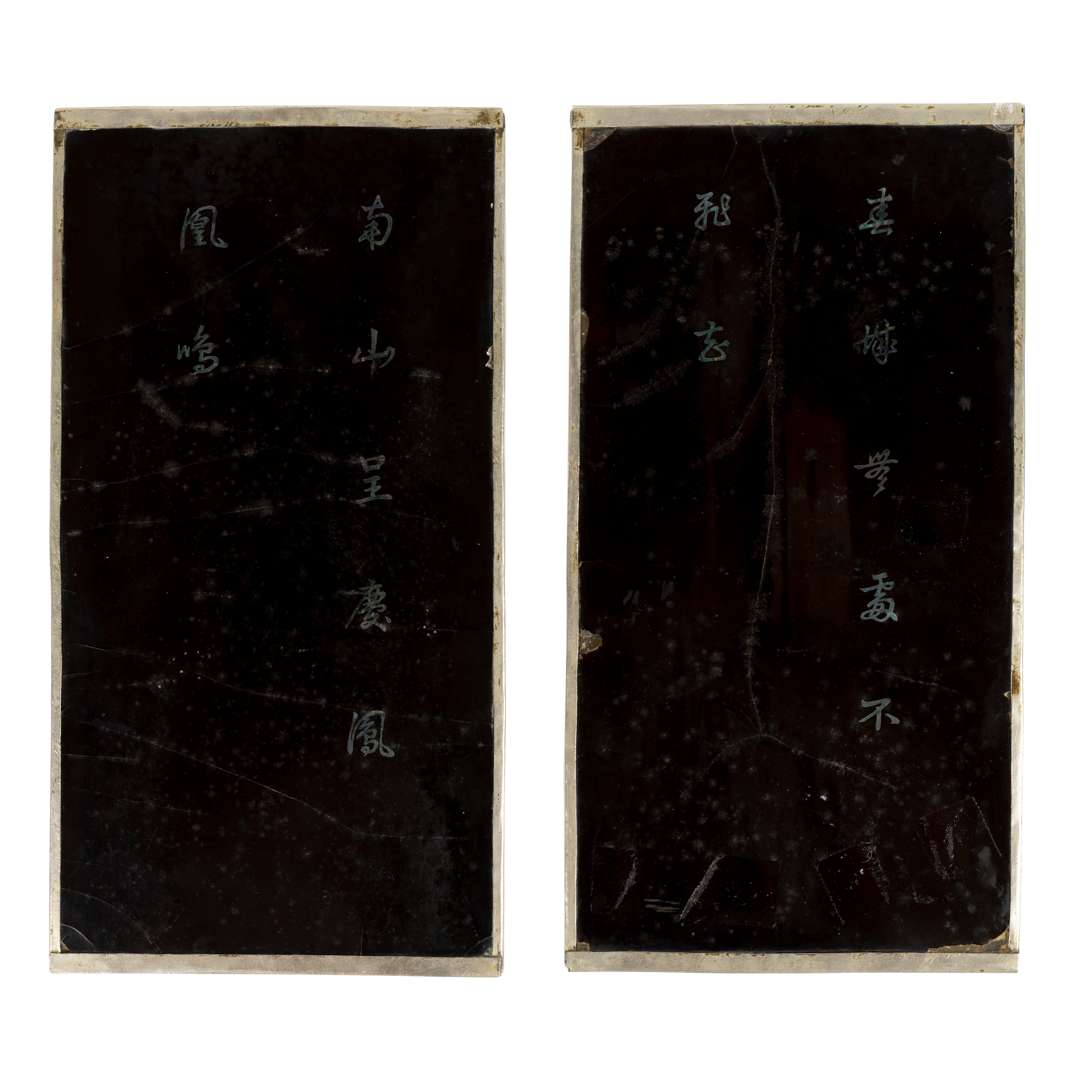 春城無處不
飛花
南山呈慶鳳
凰鳴